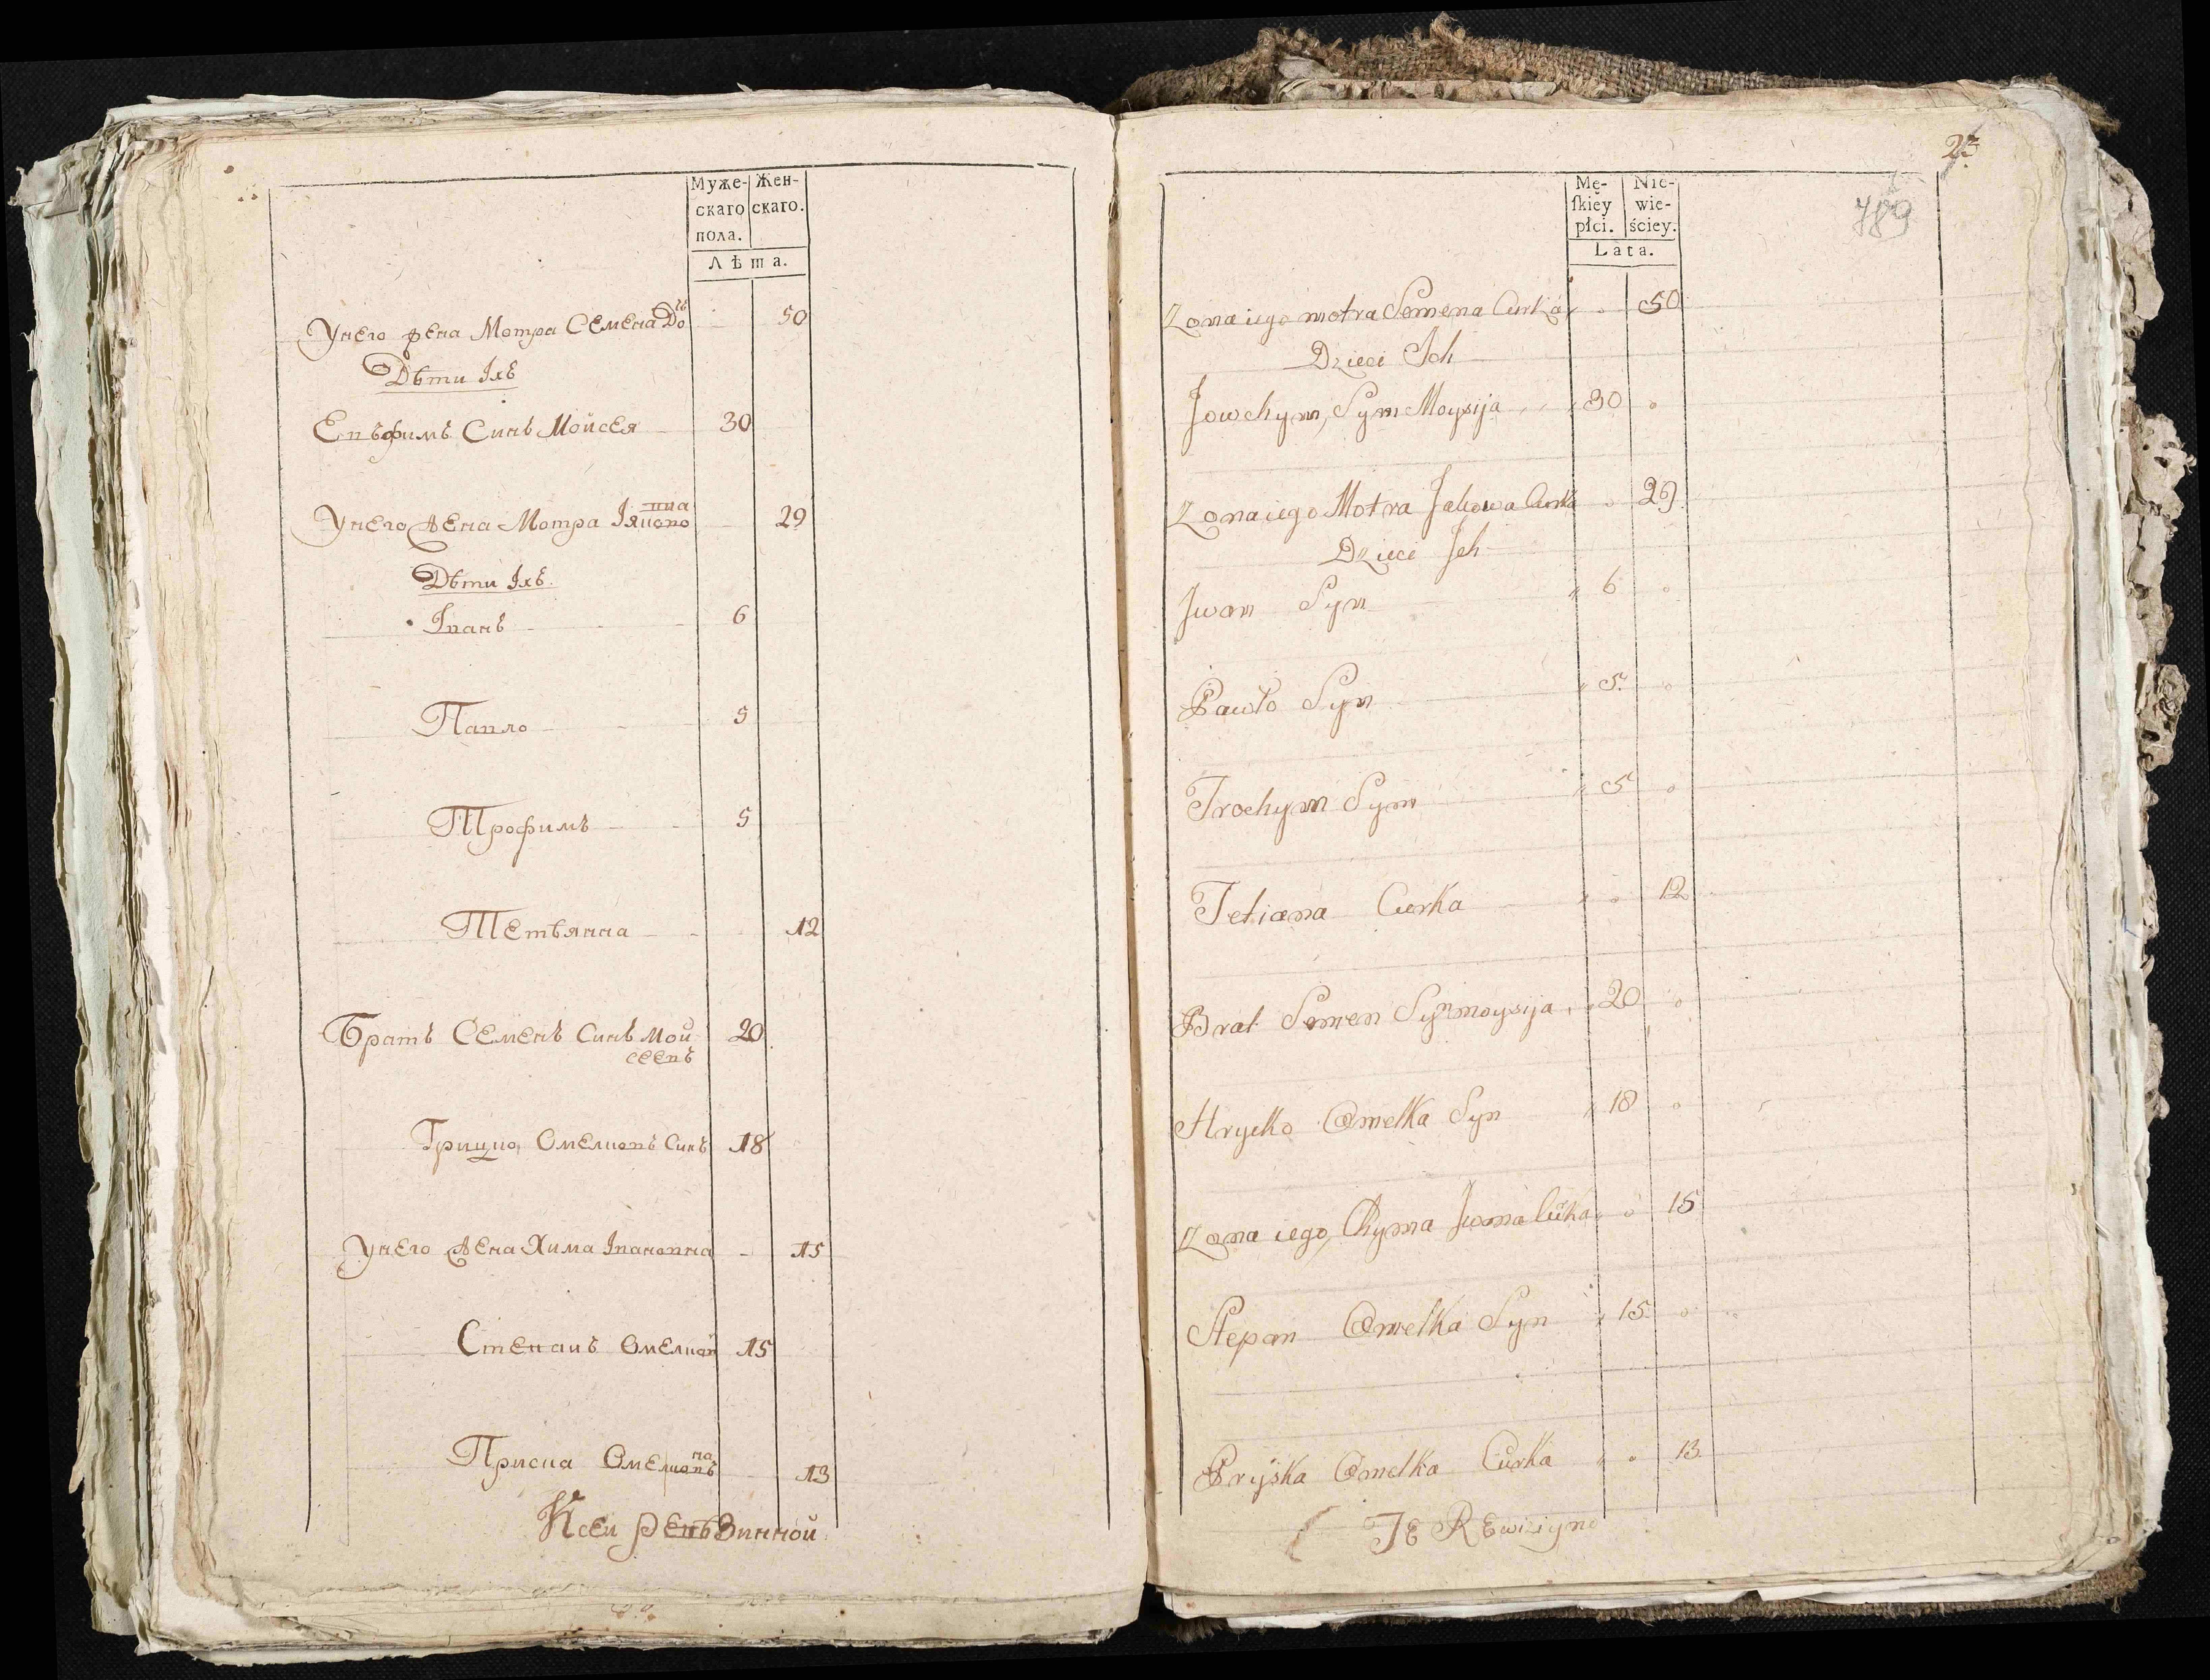 Муже- Жен-
скаго скаго.
пола.
Лѣта.
Унего жена Мотра Семена До въ 50
Дѣти Іхъ
Евъфимъ Синъ Мойсея 30
Унего жена Мотра Іяково вна 29
Дѣти Іхъ.
Іванъ 6
Павло 5
Трофимъ 5
Тетѣянна 12
Братъ Семенъ Синъ Мой 20
сеевъ
Грицко Омелковъ Синъ 18
Унего жена Хима Івановна 15
Степанъ Омелков 15
Приска Омелковъ на 13
Ксеи ревѣзинной
23
789
Mę- Nie-
ſkiey wie-
płci. ściey.
Lata.
Zona iego motra Semena Curka 50
Dzieci Ich
Jowchym, Syn Moysija 30
Zona iego Motra Jakowa Curka 29
Dzieci Ich
Jwan Syn 6
Pawło Syn 5
Trochym Syn 5
Tetiana Curka 12
Brat Semen Syn moysija 20
Hrycko Omelka Syn 18
Zona iego, Chyma Jwana Cůka 15
Stepan Omelka Syn 15
Pryska Omelka Cůrka 13
JE REwizyno